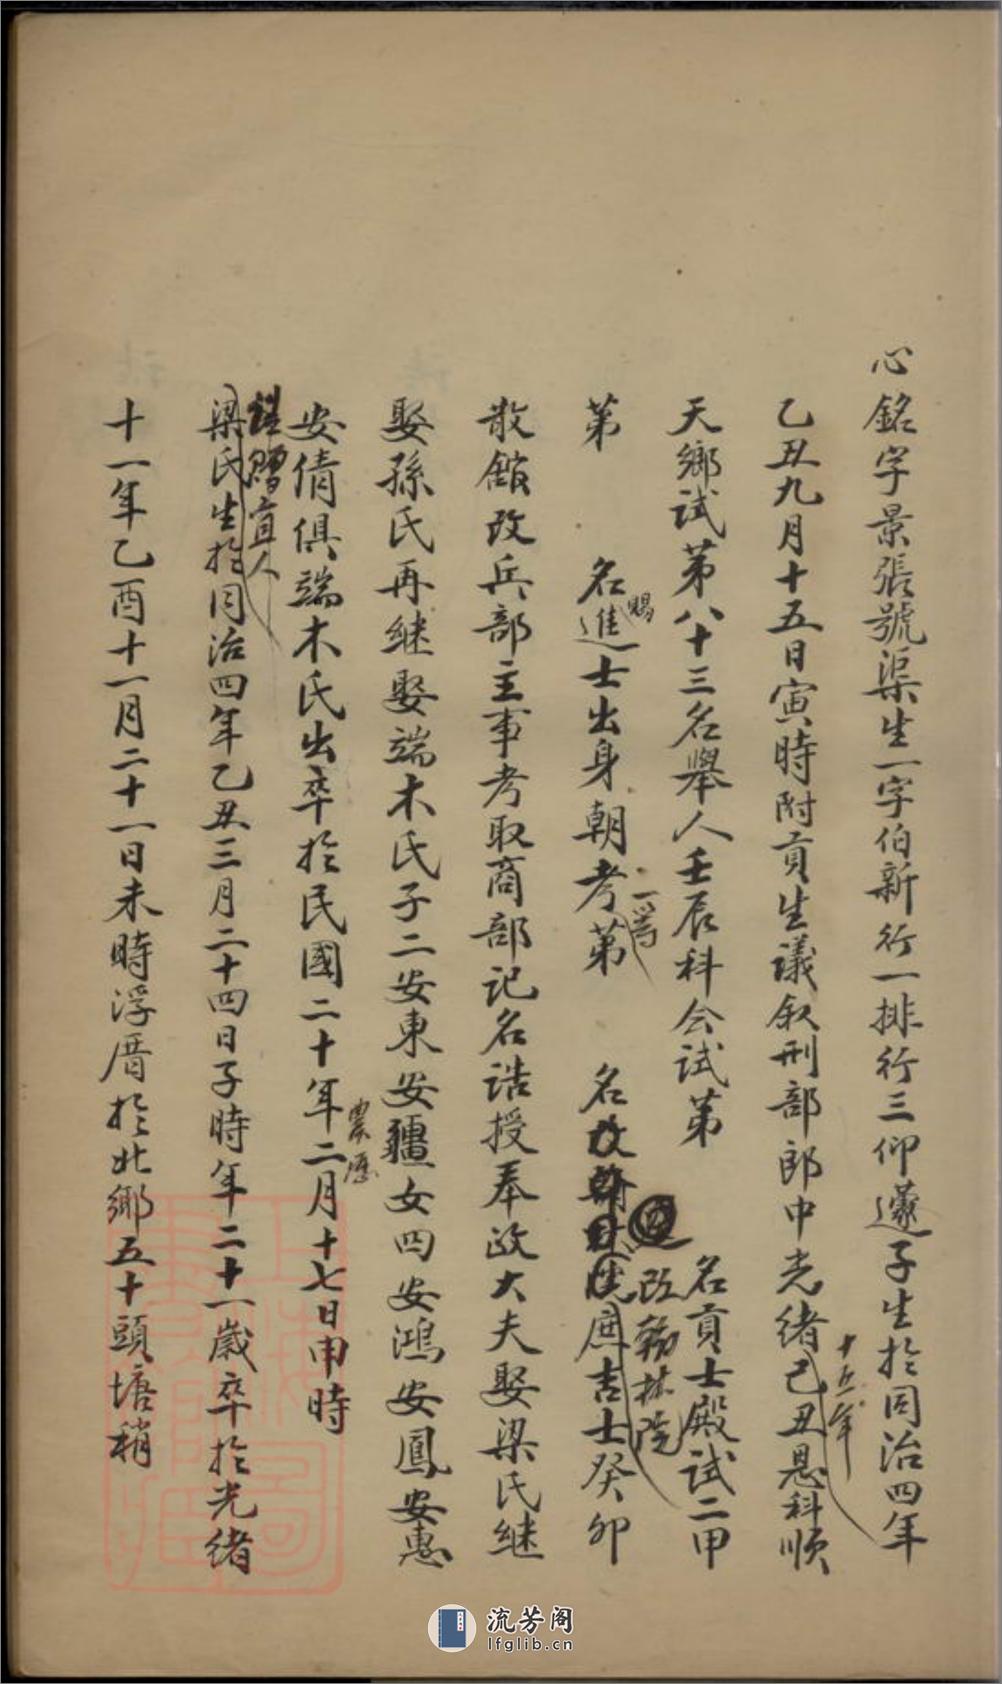 心銘字景張號渠生一字伯新行一排行三仰蘧子生於同治四年
乙丑九月十五日寅時附貢生議敘刑部郎中光緒己丑恩科順
十五年
天鄉試第八十三名舉人壬辰科会試第 名貢士殿試二甲
第 名進士出身朝考第 名改翰林院庶吉士癸卯
賜
一等
改翰林院
散館改兵部主事考取商部記名誥授奉政大夫娶梁氏継
娶孫氏再継娶端木氏子二安東安疆女四安鴻安鳳安惠
安倩俱端木氏出卒於民國二十年二月十七日申時
農歷
誥贈宜人
梁氏生於同治四年乙丑三月二十四日子時年二十一歲卒於光緒
十一年乙酉十一月二十一日未時浮厝於北鄉五十頭塘稍
上海圖書館藏
流芳阁
lfglib.cn